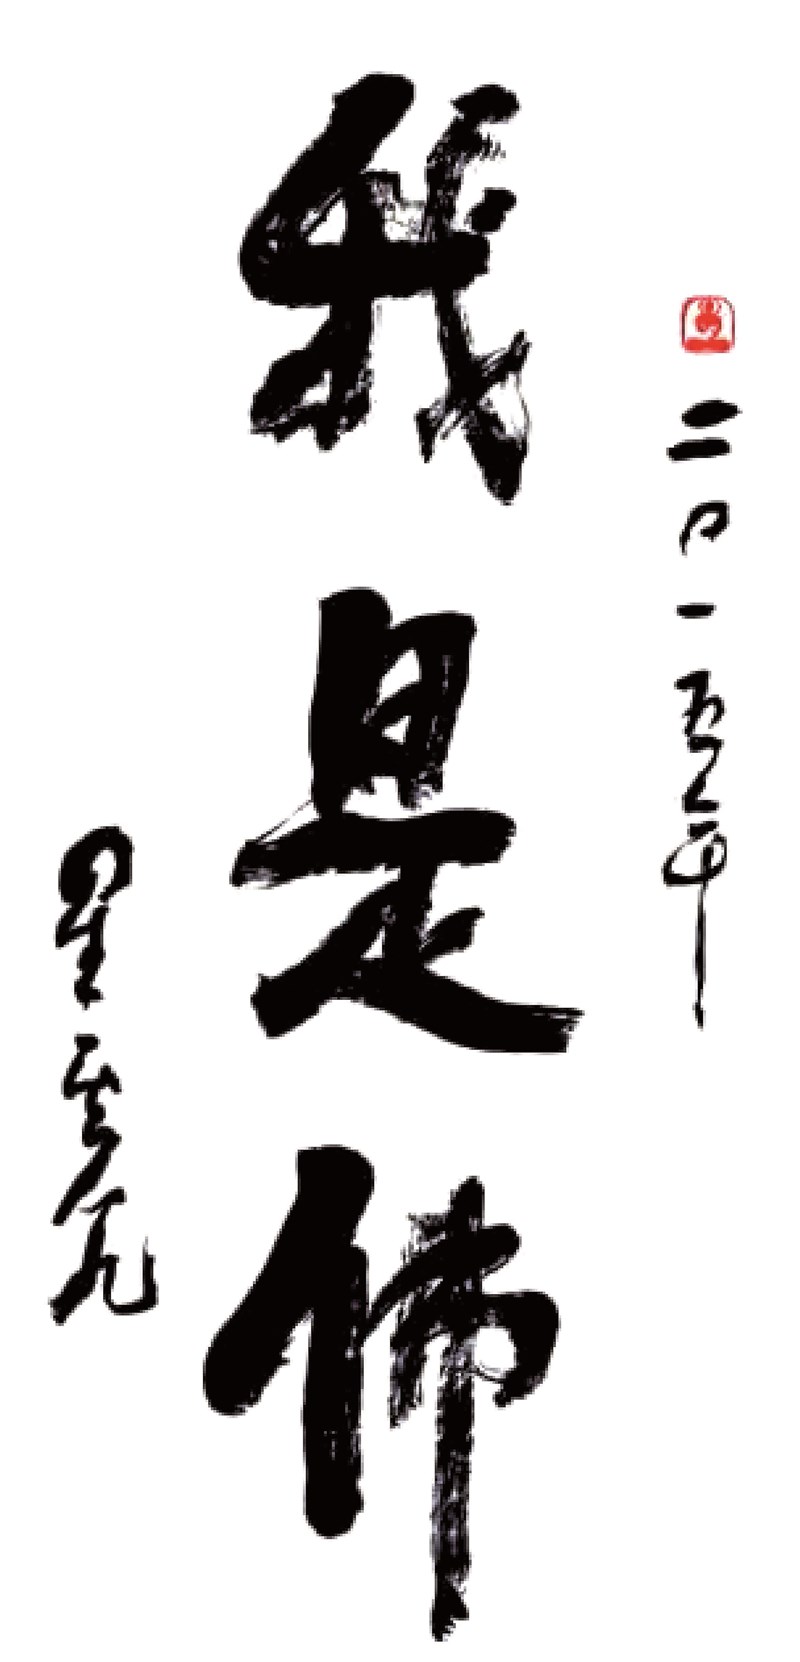 二〇一五年
我是佛
星雲